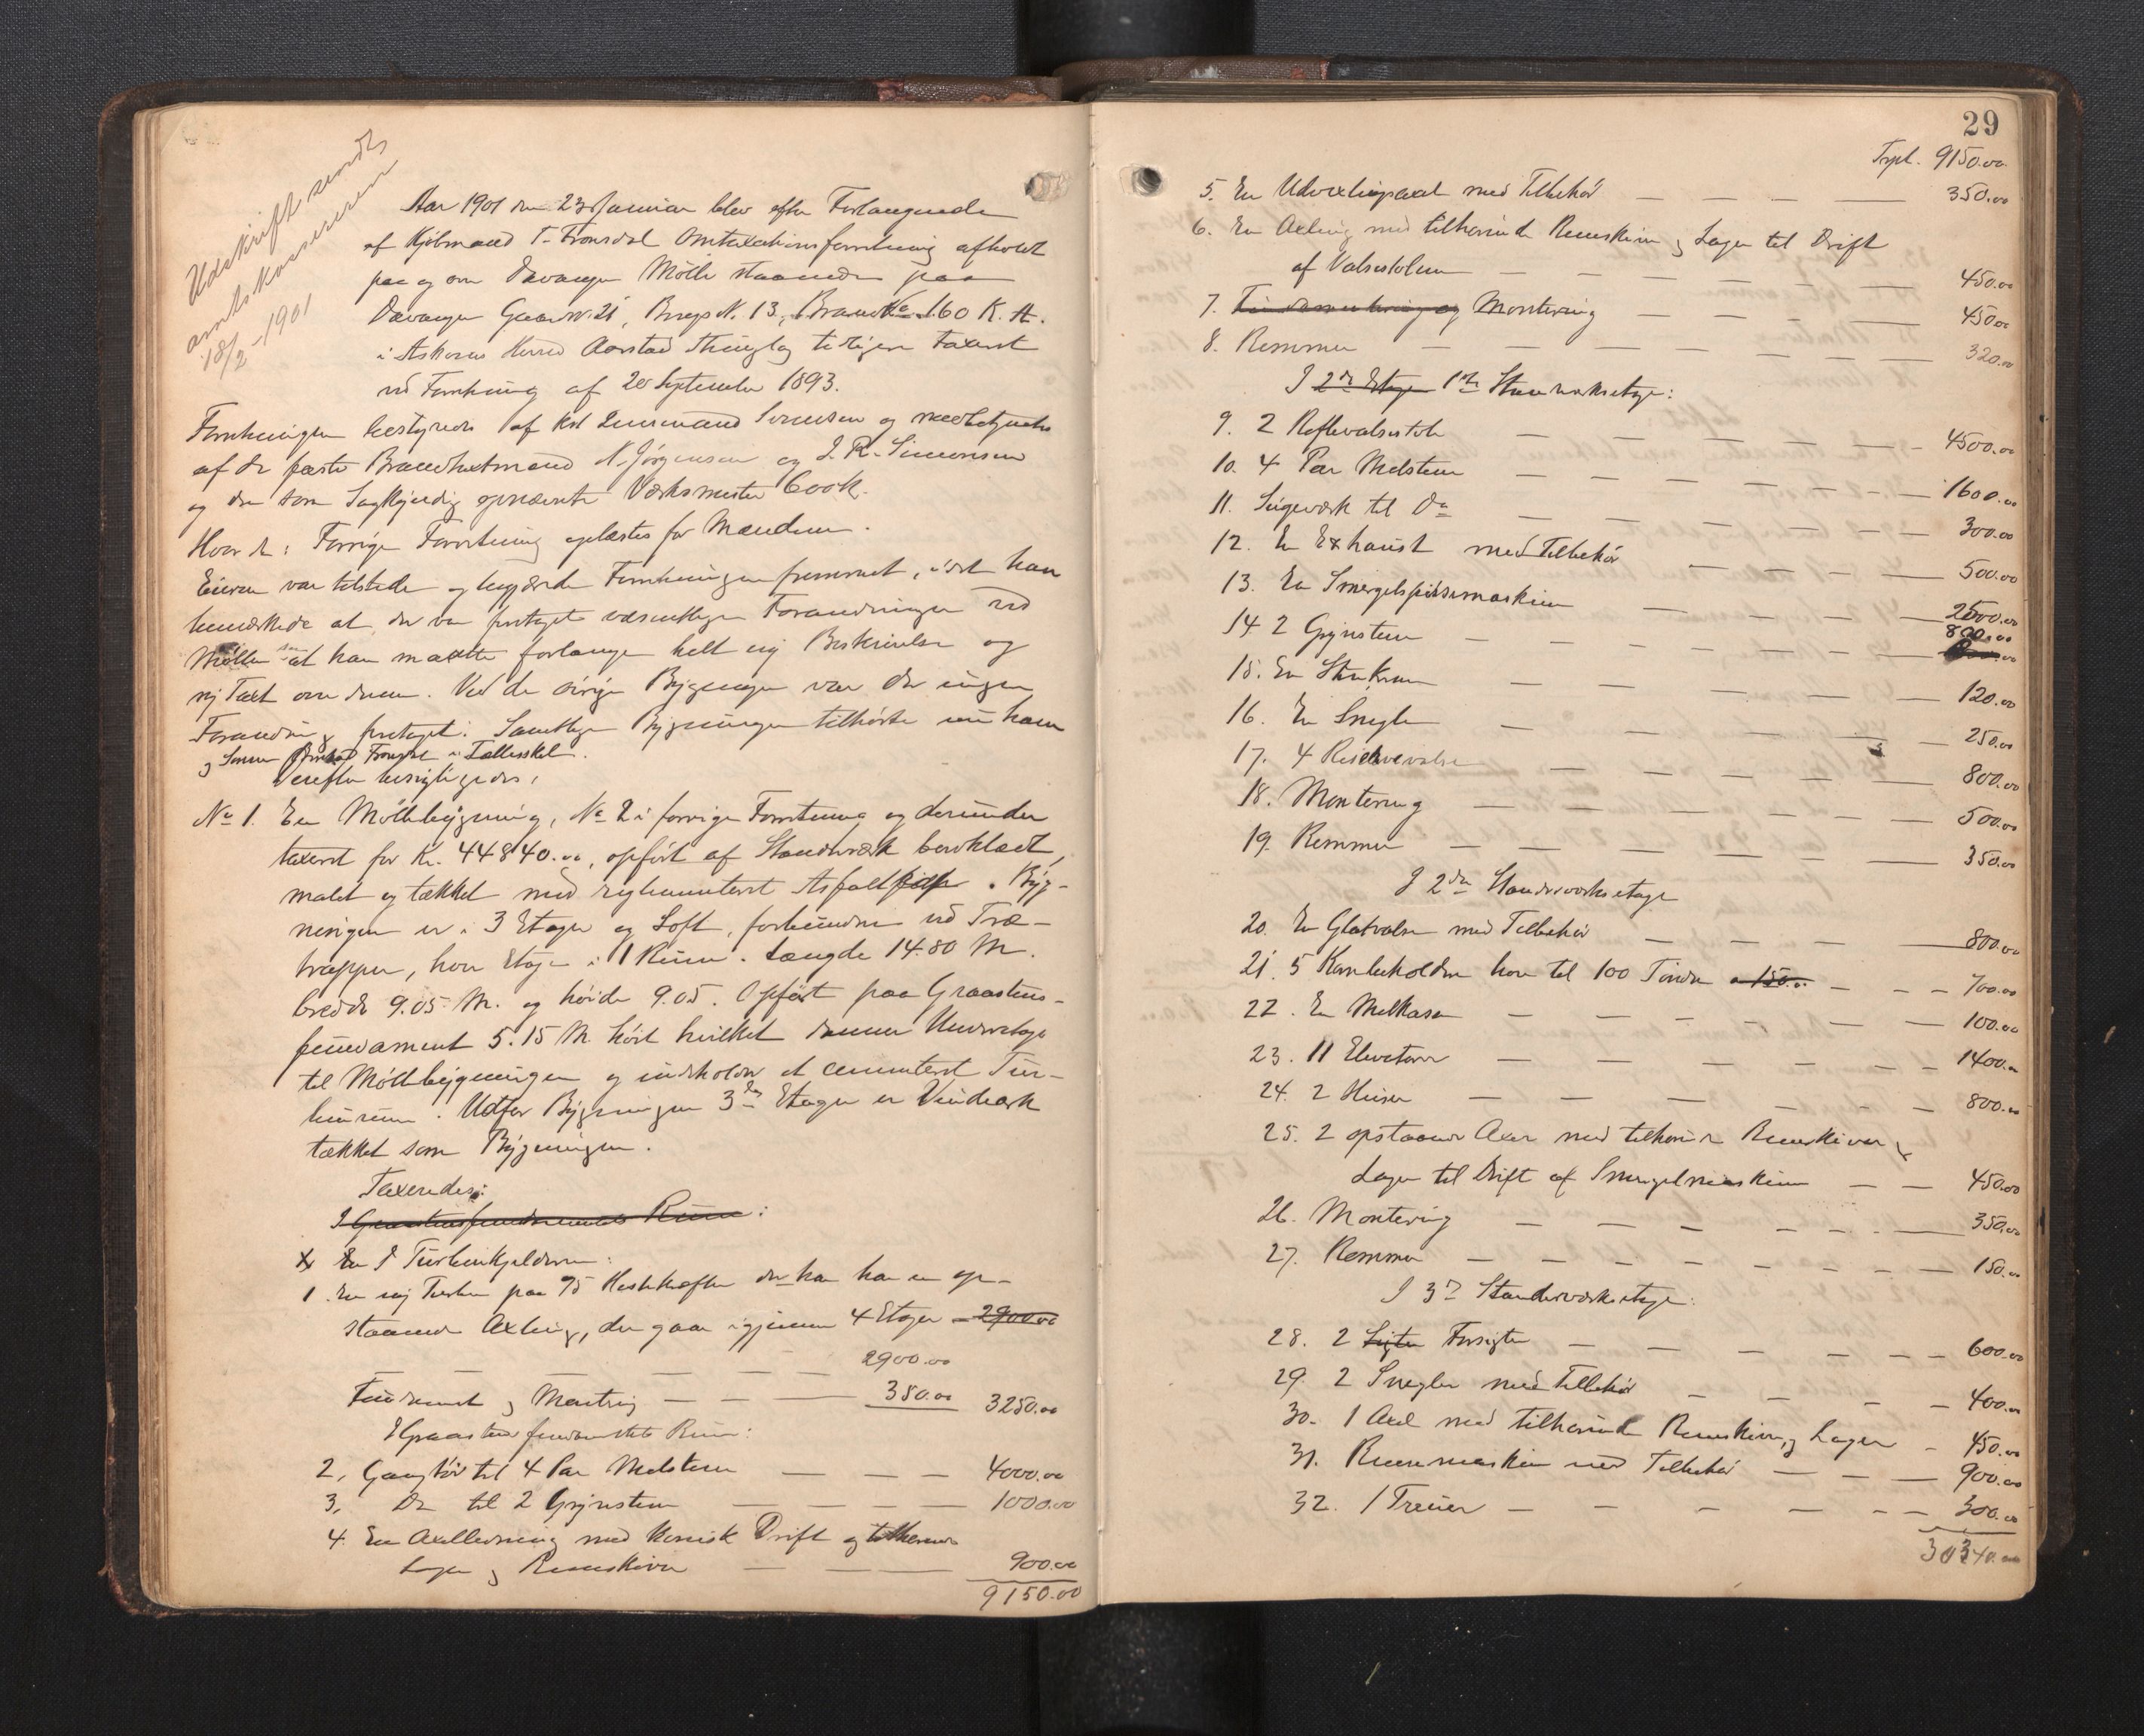 Udskrift sendt
amtskassereren
18/2 - 1901
Aar 1901 den 23 Januar blev efter Forlangende
af Kjøbmand T. Fronsdal Omtaxationsforretning afholdt
paa og over Davanger Mølle staaende paa
Davanger Gaards N. 21, Brugs N. 13, Brand No 160 K. A.
i Askøens Herred Aarstad Thinglag tidligere taxeret
ved Forretning af 20 September 1893.
Forretningen bestyredes af Kst Lensmand Sørensen og medbetjentes
af de faste Brandskjønsmænd N. Jørgensen og J. R. Simonsen
og den som Sagkyndig opnævnte Værksmester Cook.
Hvorda: Forrige Forretning oplæstes for Mændene.
Eieren var tilstede og begjærede Forretningen fremmet, idet han
bemærkede at der var foretaget væsentlige Forandringer ved
Møllen saa at han maatte forlange helt ny Beskrivelse og
ny Taxt over denne. Ved de øvrige Bygninger var der ingen
Forandring foretaget. Samtlige Bygninger tilhørte nu ham
og Sønnen Fronsdal i Fællesskab.
Derefter besigtigedes:
No 1. En Møllebygning, No 2 i forrige Forretning og derunder
taxeret for Kr. 44840.00, opført af Standværk bordklædt,
malet og tækket med rejicementeret Asfaltpap. Byg-
ningen er i 3 Etager og Loft, forbundne ved Træ-
trapper, hver Etage i 1 Rum. Længde 14.80 M.
bredde 9.05 M. og høide 9.05. Opført paa Graastens-
fundament 5.15 M høit hvilket danner Underetage
til Møllebygningen og indeholder et cementeret Tur-
binrum. Udfor Bygningens 3de Etage er Vindeark
tækket som Bygningen.
Taxeredes:
I Graastensfundamentets Rum:
I Turbinkjelderen:
1 En ny Turbin paa 75 Hestekræfter der har en op-
staaende Axling, der gaar igjennem 4 Etager - 2900.00
— — — — 2900.00
Fundament og Montring — — 350.00 3250.00
I Graastensfundamentets Rum:
2. Gangtøi til 4 Par Melstene — — — 4000.00
3. Do til 2 Grynstene — — — — 1000.00
4. En Axelledning med konisk Drift og tilhørende
Lager og Remskiver — — — 900.00
9150.00
29
Trspt. 9150.00
5. En Udvexlingsaxel med Tilbehør — — — — 350.00
6. En Axling med tilhørende Remskiver og Lager til Drift
af Valsestolene — — — — 450.00
7. Fundamentering og Montering — — — 450.00
8. Remmer — — — — — 320.00
I 2den Etage 1ste Standværksetage:
9. 2 Riflevalsestole — — — — 4500.00
10. 4 Par Melstene — — — — 1600.00
11. Sugeværk til Do — — — — 300.00
12. En Exhaust med Tilbehør — — — — 500.00
13. En Smergelspidsemaskine — — — — 2500.00
14 2 Grynstene — — — — 800.00
15. En Stenkran — — — — 120.00
16. En Snegle — — — — 250.00
17. 4 Reservevalser — — — — 800.00
18. Montering — — — — 500.00
19. Remmer — — — — 350.00
I 2den Standerværksetage
20. En Glatvalse med Tilbehør — — — — 800.00
21. 5 Kornbeholdere hver til 100 Tønder a 150.00 — — — 700.00
22. En Melkasse — — — — 100.00
23. 11 Elevatorer — — — — 1400.00
24. 2 Heiser — — — — 800.00
25. 2 opstaaende Axer med tilhørende Remskiver &
Lager til Drift af Smergelmaskinen — — 450.00
26. Montering — — — — 350.00
27. Remmer — — — — 150.00
I 3de Standerværksetage:
28. 2 Sigter Forsigter — — — — 600.00
29. 2 Snegler med Tilbehør — — — 400.00
30. 1 Axel med tilhørende Remskiver og Lager — 450.00
31. Rensemaskine med Tilbehør — — — 900.00
32. 1 Trieur — — — — 300.00
30340.00